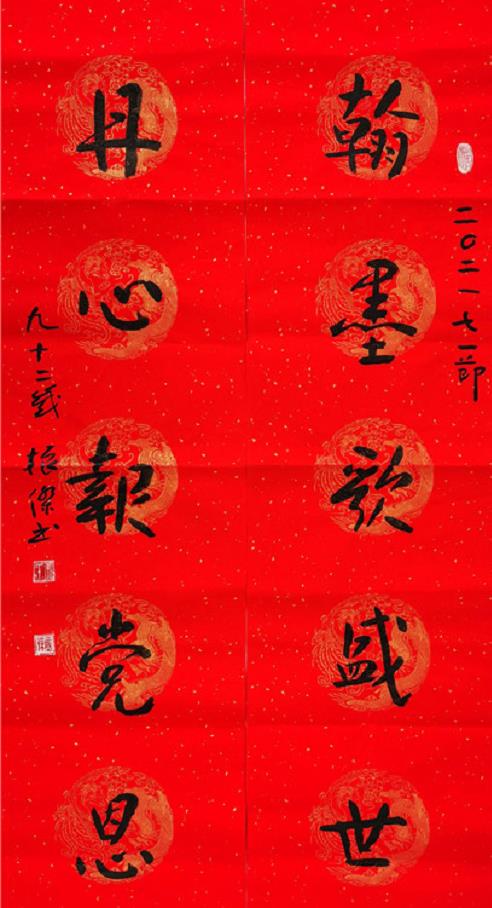 二〇二一七一节
翰墨歌盛世
丹心報党恩
九十二歲 振傑书